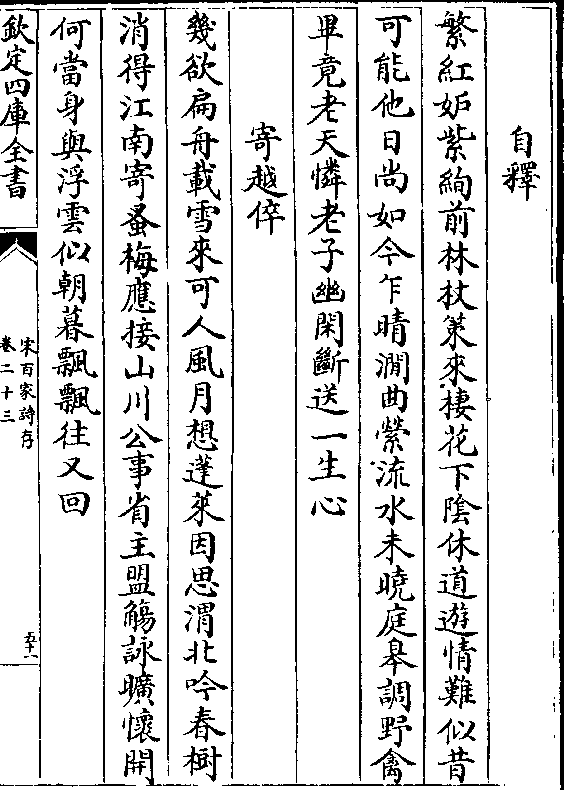 自釋
繁紅妬紫絢前林杖䇿來棲花下陰休道遊情難似昔
可能他日尚如今乍晴澗曲縈流水未曉庭臯調野禽
畢竟老天憐老子幽閑斷送一生心
寄越倅
幾欲扁舟載雪來可人風月想蓬萊因思渭北吟春樹
消得江南寄蚤梅應接山川公事省主盟觴詠曠懷開
何當身與浮雲似朝暮飄飄往又回
欽定四庫全書
宋百家詩存
卷二十三